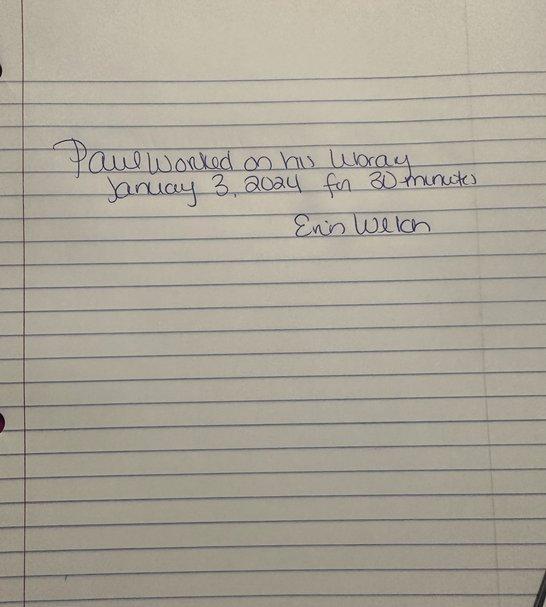 Paul worked on his
January 3, 2024 for 30 minutes
Erin Welch